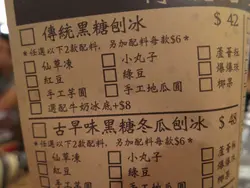 □ 傳統黑糖刨冰 $ 42
*任選以下2款配料，另加配料每款$6*
□ 仙草凍 □ 小丸子 □ 蘆薈
□ 紅豆 □ 綠豆 □ 爆爆珠
□ 手工芋圓 □ 手工地瓜圓 □ 椰果
□ 選配牛奶冰底+$8
□ 古早味黑糖冬瓜刨冰 $ 48
*任選以下2款配料，另加配料每款$6*
□ 仙草凍 □ 小丸子 □ 蘆薈
□ 紅豆 □ 綠豆 □ 爆爆
□ 手工芋圓 □ 手工地瓜圓 □ 椰果